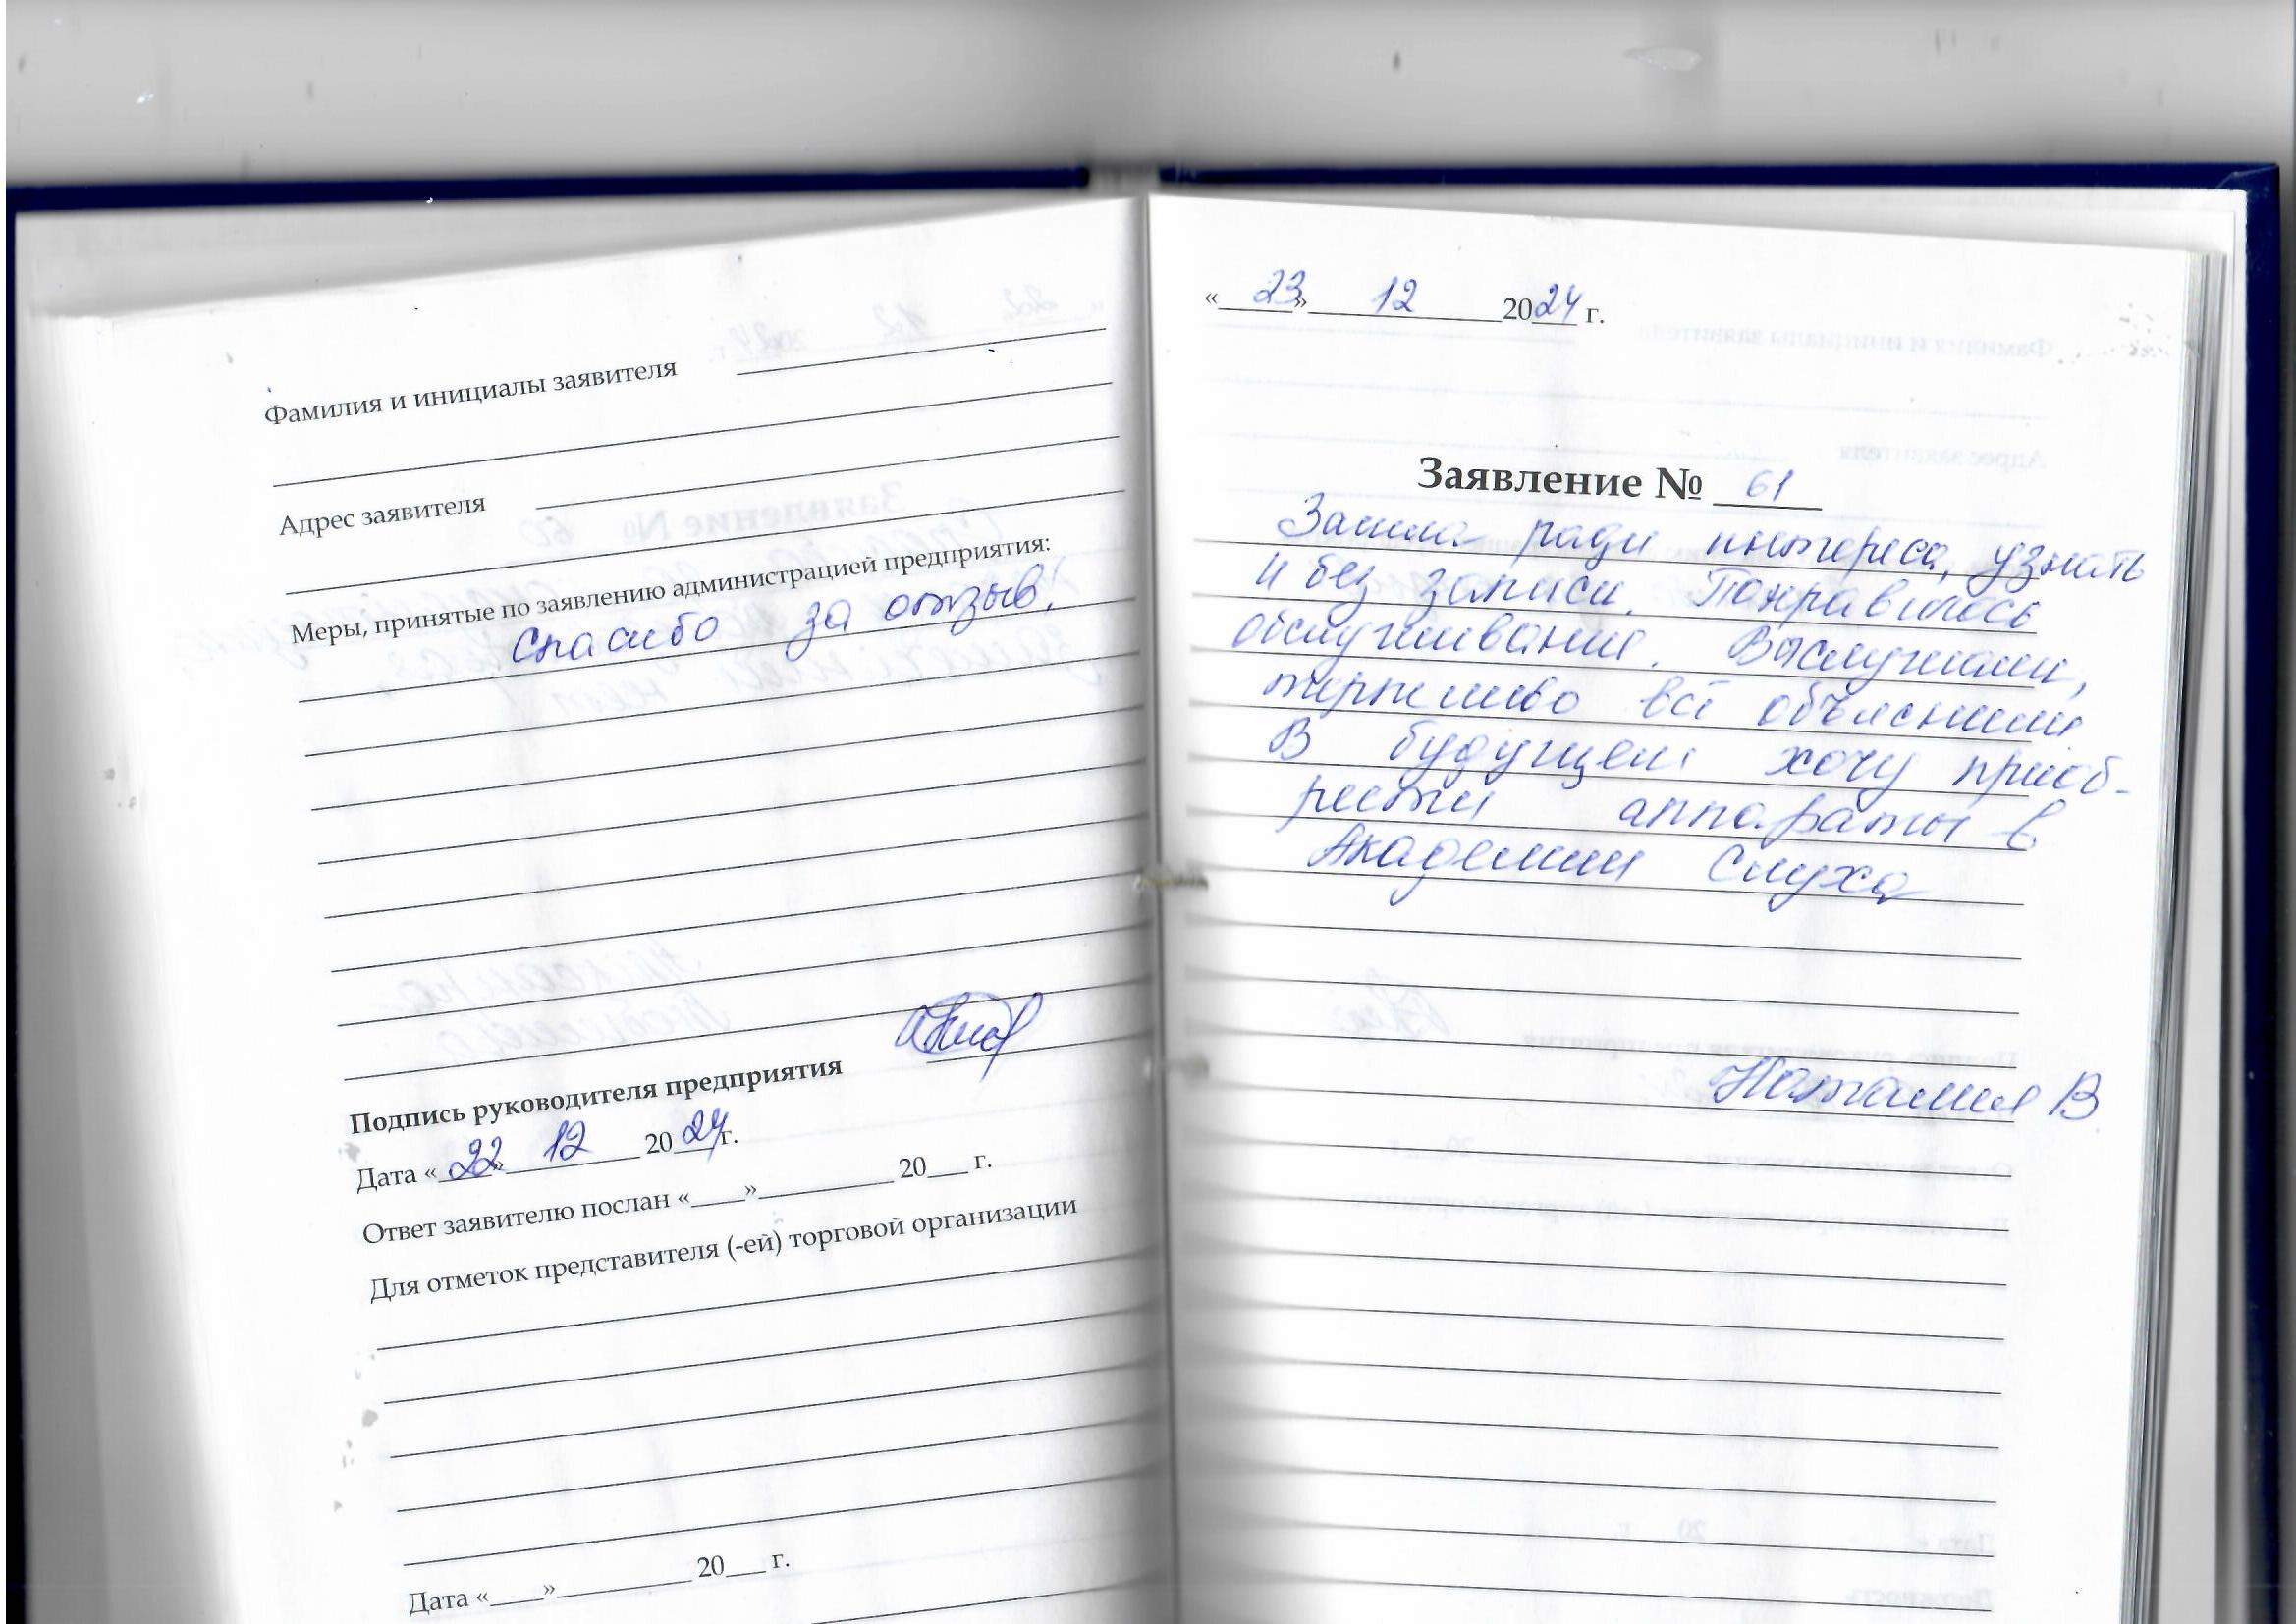 Фамилия и инициалы заявителя
Адрес заявителя
Меры, принятые по заявлению администрацией предприятия:
Спасибо за отзыв!
Подпись руководителя предприятия
Дата «22» 12 2024 г.
Ответ заявителю послан «____»__________ 20___ г.
Для отметок представителя (-ей) торговой организации
Дата «____»__________ 20___ г.
«23» 12 2024 г.
Заявление № 61
Зашла ради интереса, узнать
и без записи. Понравилось
обслуживание. Выслушали,
терпеливо всё объяснили
В будущем хочу приоб-
рести аппараты в
Академии Слуха
Наталия В.